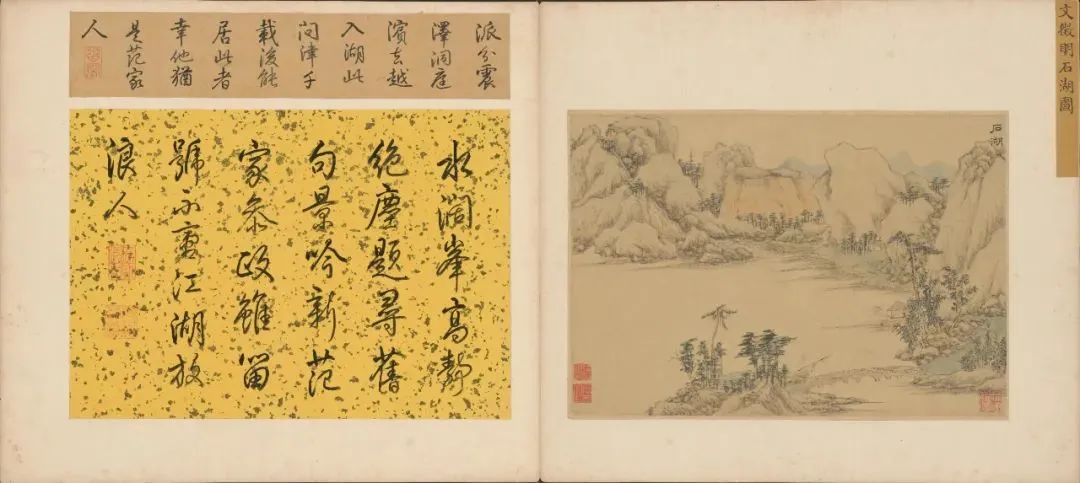 文徵明石湖圖
石湖
派分震
澤洞庭
濱去越
入湖此
问津千
載後能
居此者
幸他猶
是范家
人
水闊峯高靜
絕塵題尋舊
句景吟新范
家叅政雖留
號不更江湖放
浪人